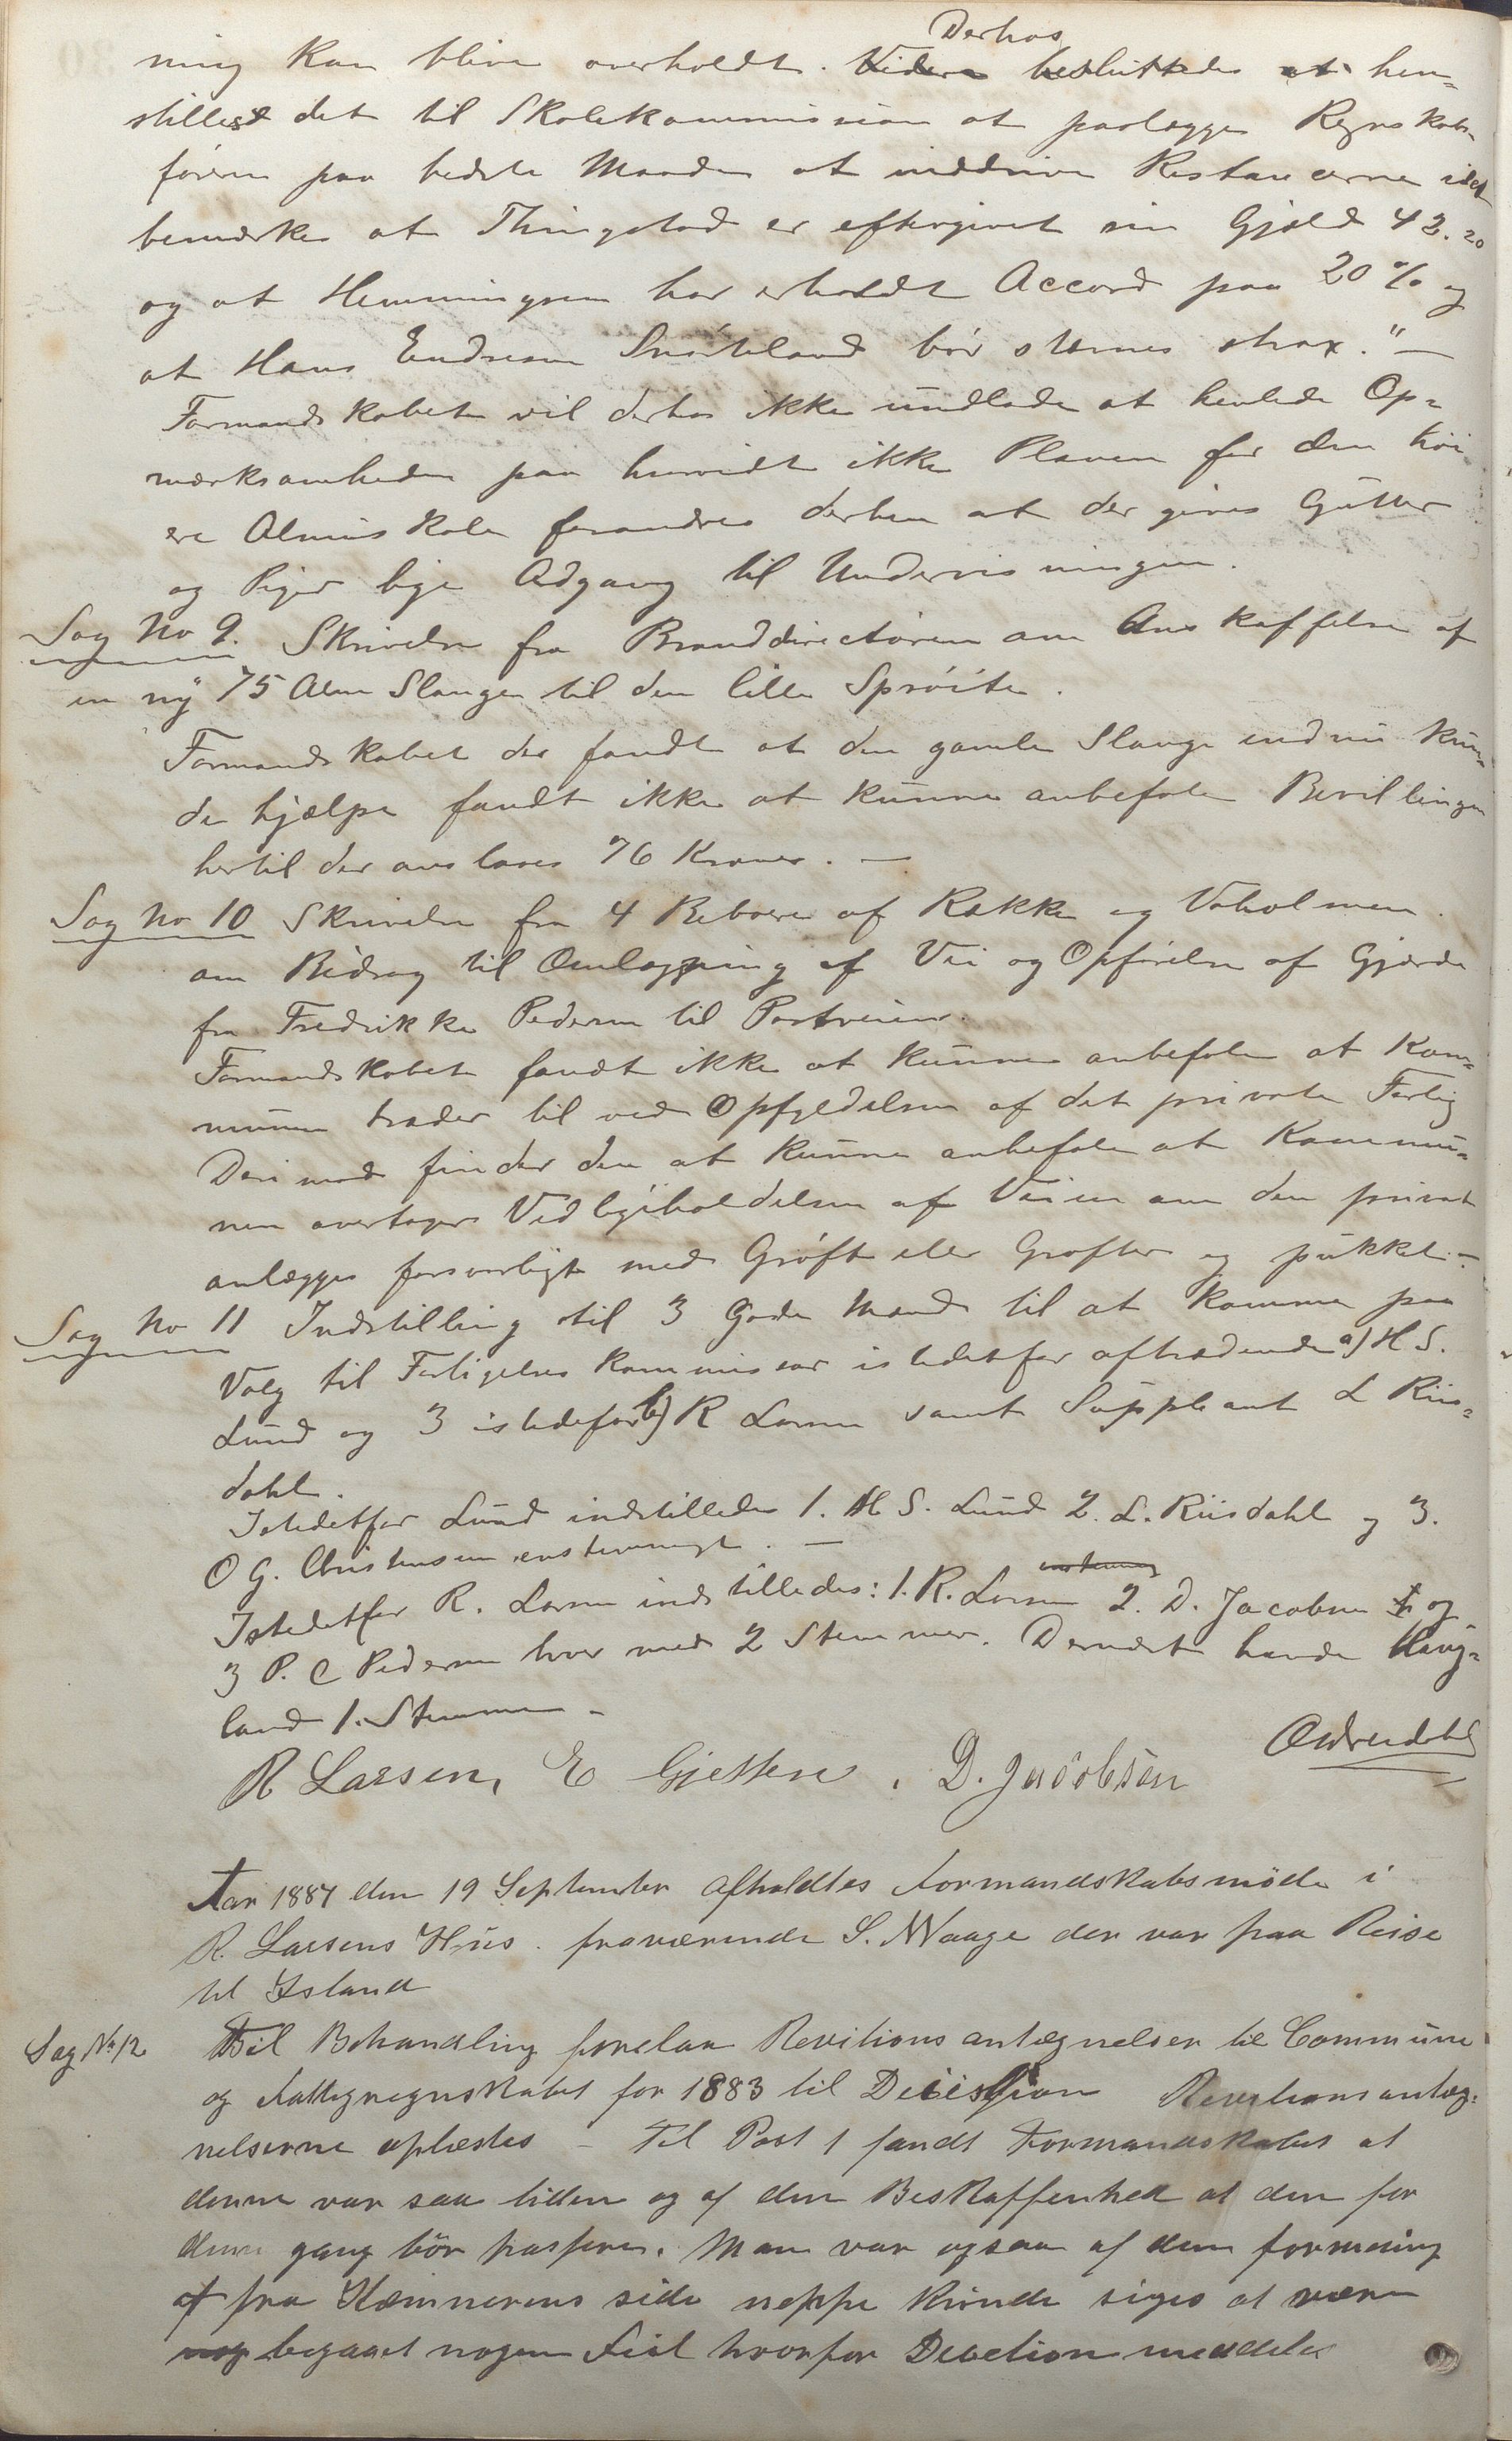 Derhos
ning kan blive overholdt. Videre besluttedes at hen-
stilles det til Skolekommission at paalægge Regnskabs-
føreren paa bedste Maade at inddrive Restancerne idet
bemærkes at Thingstad er eftergivet sin Gjæld 42.20
og at Hemmingsen har erholdt Accord paa 20 % og
at Hans Endresen bør stævnes strax." —
Formandskabet vil derhos ikke undlade at henlede Op-
mærksomheden paa hvorvidt ikke Planen for den høi-
ere Almuskole forandres derhen at der gives Gutter
og Piger lige Adgang til Undervisningen.
Sag No 9. Skrivelse fra Branddirectøren om Anskaffelse af
en ny 75 Alen Slange til den lille Sprøite.
Formandskabet der fandt at den gamle Slange endnu kun-
de hjælpe fandt ikke at kunne anbefale Bevillingen
hertil der ansloges 76 Kroner. —
Sag No 10 Skrivelse fra 4 Beboere af Række og Vaholmen
om Bidrag til Omlægning af Vei og Opførelse af Gjærde
fra Fredrikke Pedersen til Postveien.
Formandskabet fandt ikke at kunne anbefale at Kom-
munen træder til ved Opfyldelsen af det private Forlig
Derimod finder den at kunne anbefale at Kommu-
nen overtager Vedligeholdelsen af Veien om den privat
anlægges forsvarligt med Grøft eller Grøfter og pukket. —
Sag No 11 Indstilling til 3 Gode Mænd til at komme paa
Valg til Forligelseskommissær istedetfor aftrædende a) H S.
Lund og 3 istedefor b) R Larsen samt Suppleant L Riis-
dahl.
Istedetfor Lund indstilledes 1. H S. Lund 2. L. Riisdahl og 3.
O G. Christensen enstemmigt. —
Istedetfor R. Larsen indstilledes: 1. R. Larsen enstemmig 2. D. Jacobsen og
3 P. C Pedersen hver med 2 Stemmer. Dernæst havde Haug-
land 1. Stemme -
R Larsen, E Gjettene, D. Jacobsen
Aar 1884 den 19 September afholdtes Formandskabsmøde i
R. Larsens Hus. fraværende S. Waage der var paa Reise
til Island
Sag No 12 Til Behandling forelaa Revitions antegnelser til Commune
og Fattigregnskabet for 1883 til Decission Revitionsanteg-
nelserne oplæstes - Til Post 1 fandt Formandskabet at
denne var saa liden og af den Beskaffenhed at den for
denne gang bør passere. Man var ogsaa af den formening
at fra Kæmnerens side neppe kunde siges at være
nog begaaet nogen Feil hvorfor Decetion meddeles